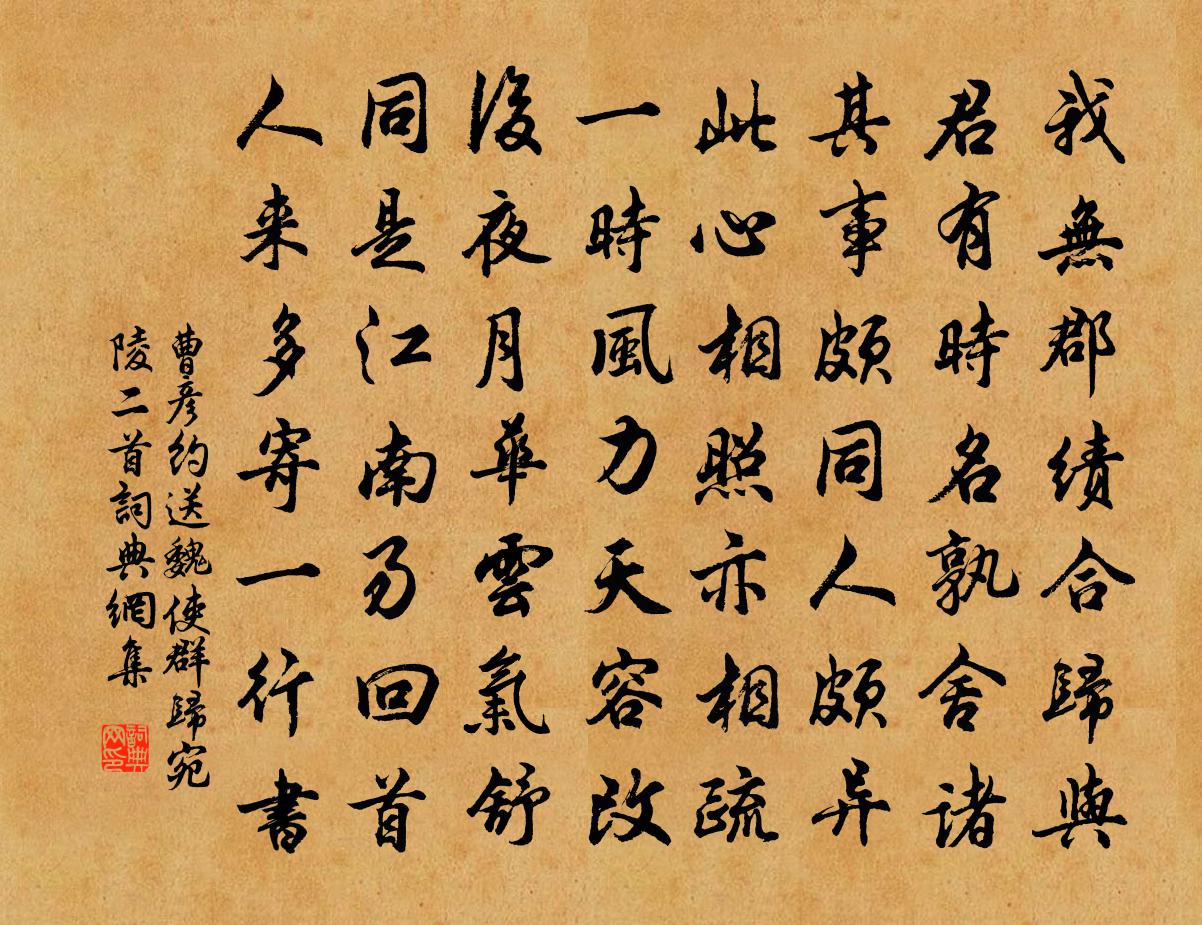 我無郡績合歸與
君有時名孰舍諸
其事頗同人頗异
此心相照亦相疏
一時風力天容改
後夜月華雲氣舒
同是江南易回首
人来多寄一行書
曹彦約送魏使群歸宛
陵二首詞典網集
詞典网印